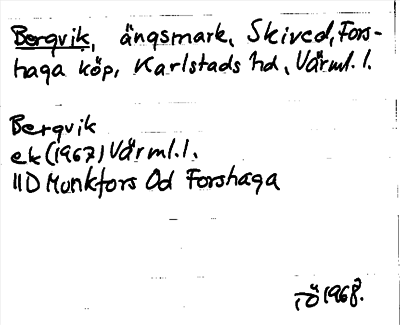 Bergvik, ängsmark, Skived, Fors-
haga köp, Karlstads hd, Värml. l.
Bergvik
ek (1967) Värml. l.
11D Munkfors Öd Forshaga
TÖ 1968.